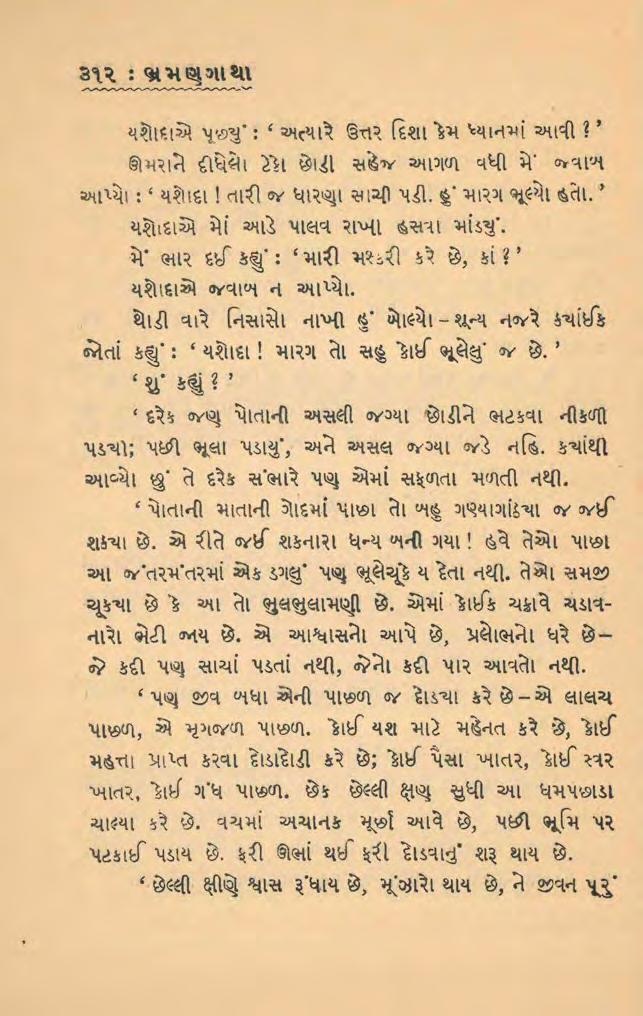 ૩૧૨ : ભ્રમણગાથા
યશોદાએ પૂછ્યું : ‘ અત્યારે ઉત્તર દિશા કેમ ધ્યાનમાં આવી ? ’
ઊમરાને દીધેલો ટેકો છોડી સહેજ આગળ વધી મેં જવાબ
આપ્યો : ‘ યશોદા ! તારી જ ધારણા સાચી પડી. હું મારગ ભૂલ્યો હતો. ’
યશોદાએ મોં આડે પાલવ રાખી હસવા માંડ્યું.
મેં ભાર દઈ કહ્યું : ‘ મારી મશ્કરી કરે છે, કાં ? ’
યશોદાએ જવાબ ન આપ્યો.
થોડી વારે નિસાસો નાખી હું બોલ્યો – શૂન્ય નજરે ક્યાંઈક
જોતાં કહ્યું : ‘ યશોદા ! મારગ તો સહુ કોઈ ભૂલેલું જ છે. ’
‘ શું કહ્યું ? ’
‘ દરેક જણ પોતાની અસલી જગ્યા છોડીને ભટકવા નીકળી
પડ્યો; પછી ભૂલા પડાયું, અને અસલ જગ્યા જડે નહિ. ક્યાંથી
આવ્યો છું તે દરેક સંભારે પણ એમાં સફળતા મળતી નથી.
‘ પોતાની માતાની ગોદમાં પાછા તો બહુ ગણ્યાગાંઠ્યા જ જઈ
શક્યા છે. એ રીતે જઈ શકનારા ધન્ય બની ગયા ! હવે તેઓ પાછા
આ જંતરમંતરમાં એક ડગલું પણ ભૂલેચૂકે ય દેતા નથી. તેઓ સમજી
ચૂક્યા છે કે આ તો ભુલભુલામણી છે. એમાં કોઈક ચક્રાવે ચડાવ-
નારો ભેટી જાય છે. એ આશ્વાસનો આપે છે, પ્રલોભનો ધરે છે–
જે કદી પણ સાચાં પડતાં નથી, જેનો કદી પાર આવતો નથી.
‘ પણ જીવ બધા એની પાછળ જ દોડ્યા કરે છે – એ લાલચ
પાછળ, એ મૃગજળ પાછળ. કોઈ યશ માટે મહેનત કરે છે, કોઈ
મહત્તા પ્રાપ્ત કરવા દોડાદોડી કરે છે; કોઈ પૈસા ખાતર, કોઈ સ્વર
ખાતર, કોઈ ગંધ પાછળ. છેક છેલ્લી ક્ષણ સુધી આ ધમપછાડા
ચાલ્યા કરે છે. વચમાં અચાનક મૂર્છા આવે છે, પછી ભૂમિ પર
પટકાઈ પડાય છે. ફરી ઊભાં થઈ ફરી દોડવાનું શરૂ થાય છે.
‘ છેલ્લી ક્ષીણે શ્વાસ રૂંધાય છે, મૂંઝારો થાય છે, ને જીવન પૂરું